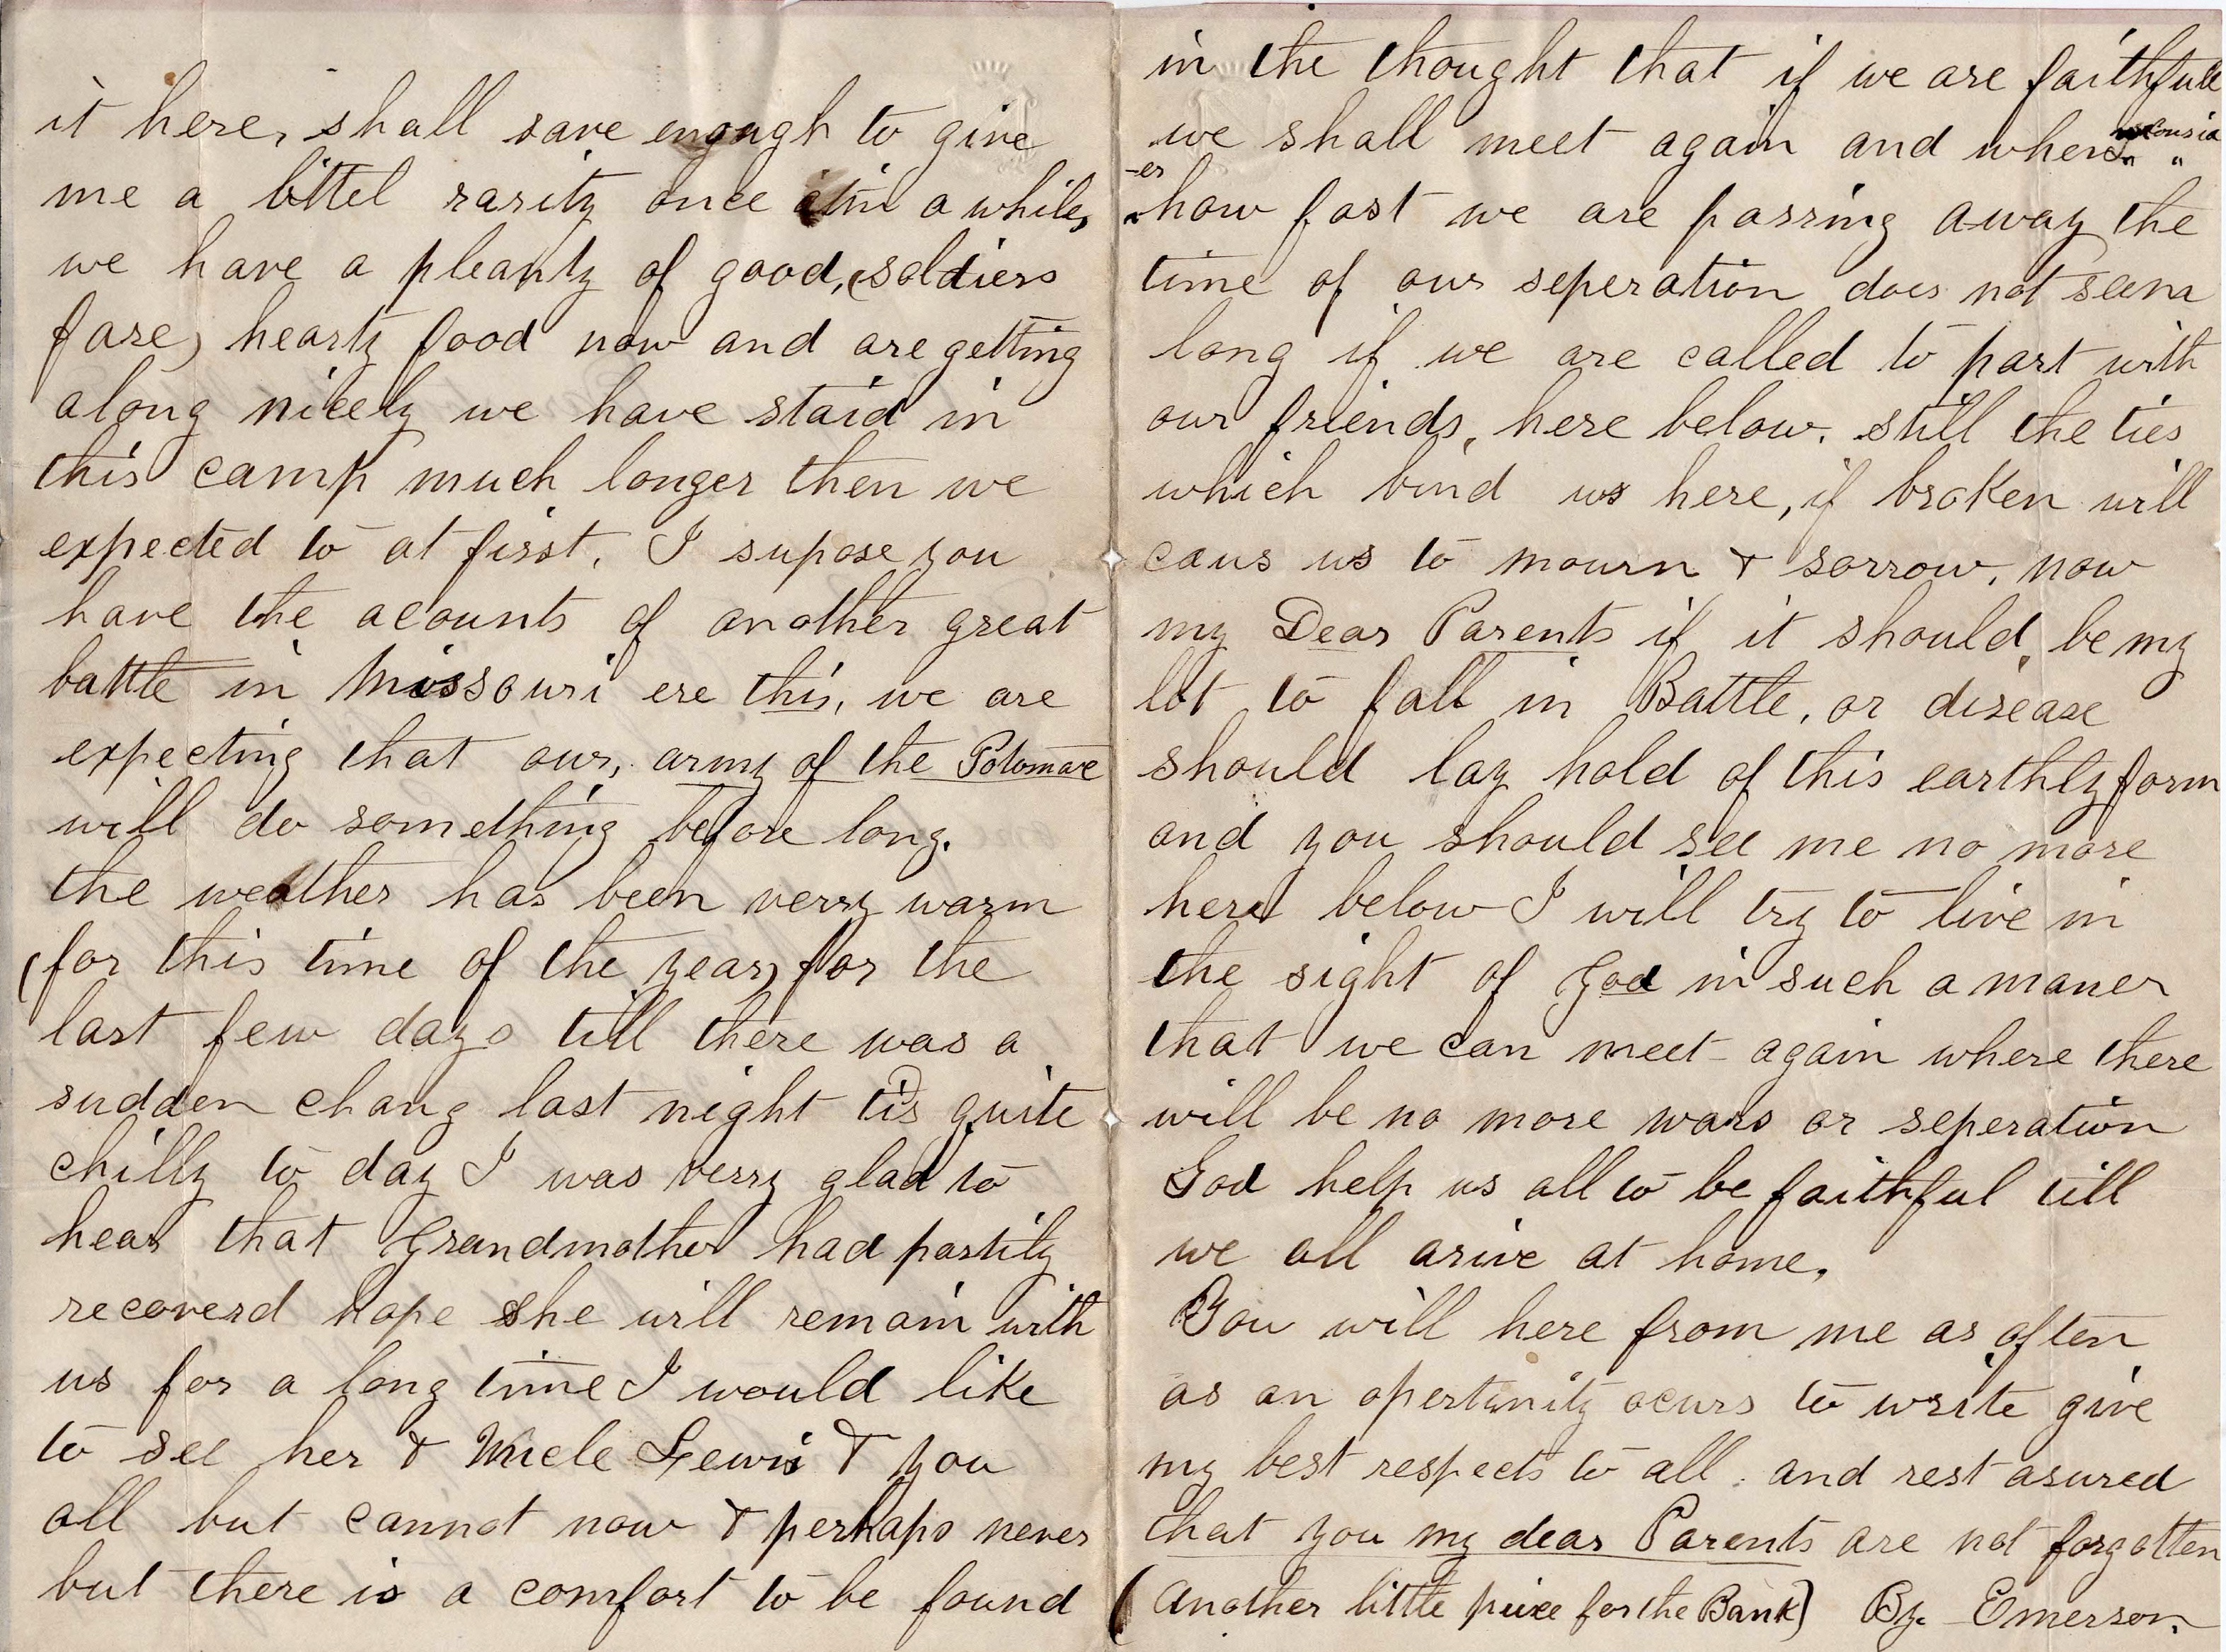 it here, shall save enough to give
me a littel rarity once in a while,
we have a pleanty of good, (soldiers
fare) hearty food now and are getting
along nicely we have staid in
this camp much longer then we
expected to at first. I supose you
have the acounts of another great
battle in Missouri ere this, we are
expecting that our, army of the Potomac
will do something before long.
the weather has been verry warm
(for this time of the year) for the
last few days till there was a
sudden chang last night tis quite
chilly to day I was verry glad to
hear that Grandmother had partily
recoverd hope she will remain with
us for a long time I would like
to see her & Uncle Lewis & you
all but cannot now & perhaps never
but there is a comfort to be found
in the thought that if we are faithfull
we shall meet again and when
how fast we are passing away the
time of our seperation does not seem
long if we are called to part with
our friends, here below. still the ties
which bind us here, if broken will
caus us to mourn & sorrow. now
my Dear Parents if it should, be my
lot to fall in Battle, or disease
should lay hold of this earthly form
and you should see me no more
here below I will try to live in
the sight of God in such a maner
that we can meet again where there
will be no more wars or seperation
God help us all to be faithful till
we all arive at home.
You will here from me as often
as an opertunity ocurs to write give
my best respects to all. and rest asured
that you my dear Parents are not forgotten
(Another little peice for the Bank) By. Emerson.